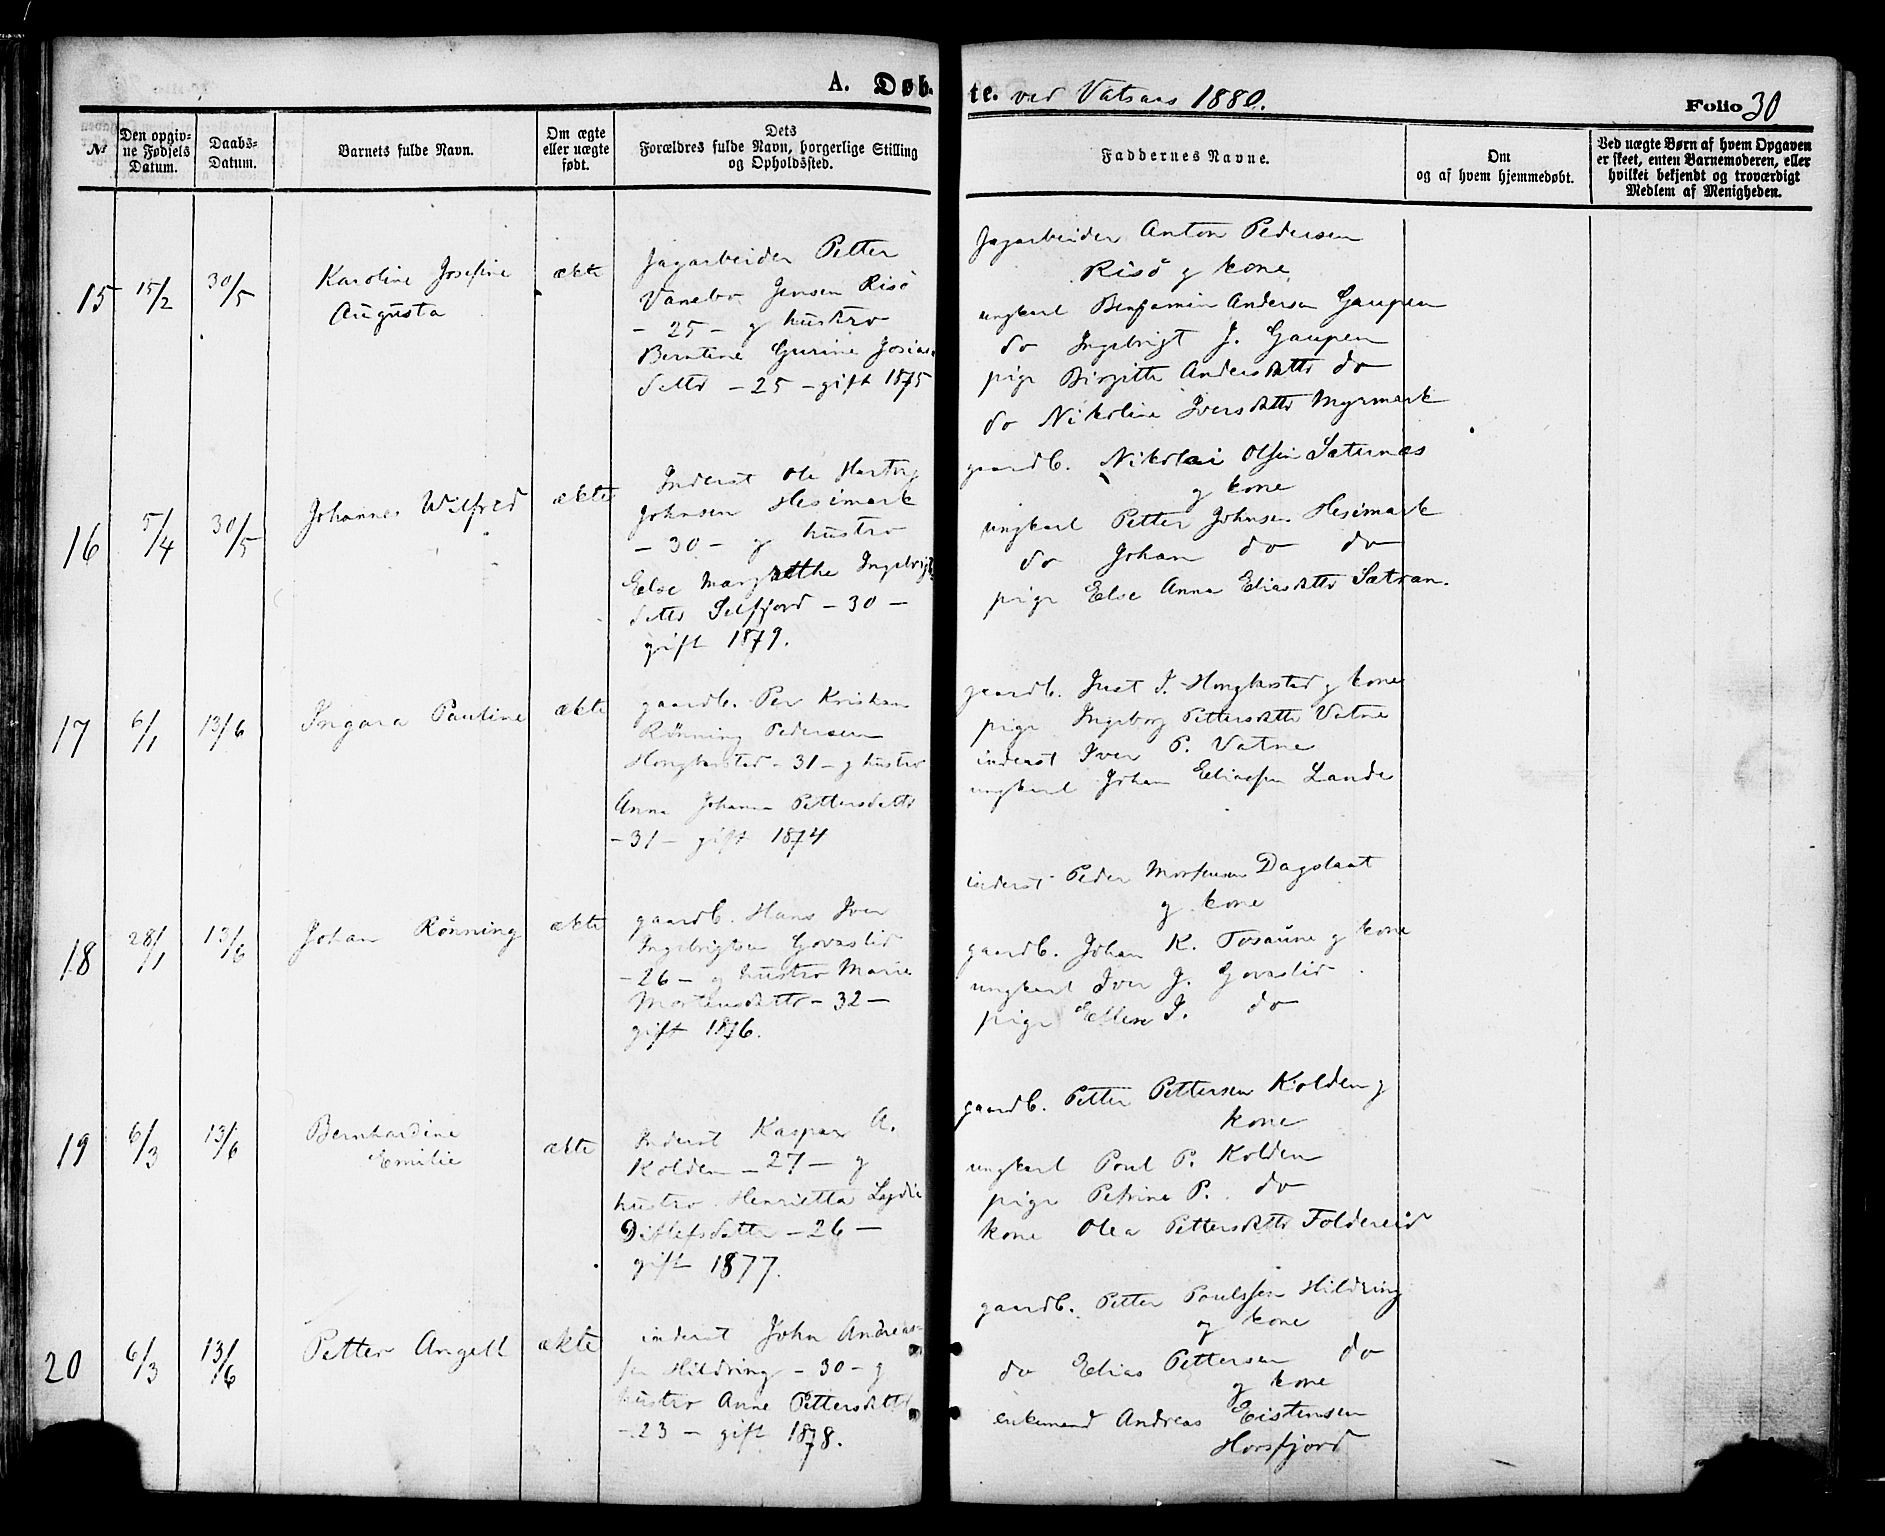 A. Døb-
te. ved Vatsaas 1880.
Folio 30
№
Den opgiv-
ne Fødsels
Datum.
Daabs-
Datum.
Barnets fulde Navn.
Om ægte
eller uægte
født.
Dets
Forældres fulde Navn, borgerlige Stilling
og Opholdssted.
Faddernes Navne.
Om
og af hvem hjemmedøbt.
Ved uægte Børn af hvem Opgaven
er skeet, enten Barnemoderen, eller
hvilket bekjendt og troværdigt
Medlem af Menigheden.
15 15/2 30/5
Karoline Josefine
Augusta
ækte
Jagarbeider Petter
Vanebo Jensen Risö
- 25 - g hustro
Berntine Gurine Josias
dattr - 25 - gift 1875
Jagarbeider Anton Pedersen
Risö g kone
ungkarl Benjamin Andersen Gaupen
do Ingebrigt J. Gaupen
pige Birgitte Andersdattr do
do Nikoline Iversdattr Myrmark
16 5/4 30/5
Johannes Wilfred
ækte
Inderst Ole Hartvig
Johnsen Hesimark
- 30 - g hustro
Else Margrethe Ingebrigts
dattr Selfjord - 30 -
gift 1879.
gaardb. Nikolai Olsen Sæternes
g kone
ungkarl Petter Johnsen Hesimark
do Johan do do
pige Else Anna Eliasdattr Sætran.
17 6/1 13/6
Ingara Pauline
ækte
gaardb. Per Kristian
Rönning Pedersen
- 31 - g hustro
Anna Johanna Pettersdattr
- 31 - gift 1874
gaardb. Just J. g kone
pige Ingeborg Pettersdattr Vatne
inderst Iver P. Vatne
ungkarl Johan Eliassen Lande
18 28/1 13/6
Johan Rönning
ækte
gaardb. Hans Iver
Ingebrigtsen Govaslid
- 26 - g hustro Marie
Mortensdattr - 32 -
gift 1876.
inderst Peder Mortensen Dagslaat
g kone
gaardb. Johan K. Fosaune g kone
ungkarl Iver J. Govaslid
pige Ellen J. do
19 6/3 13/6
Bernhardine
Emilie
ækte
Inderst Kaspar A.
Kolden - 27 - g
hustro Henrietta Lydie
Ditlefsdatter - 26 -
gift 1877.
gaardb. Petter Pettersen Kolden g
kone
ungkarl Poul P. Kolden
pige Petrine P. do
kone Olea Pettersdattr Foldereid
20 6/3 13/6
Petter Angell
ækte
inderst John Andreas-
sen Hildring - 30 - g
hustro Anne Pettersdattr
- 23 - gift 1878.
gaardb. Petter Poulsen Hildring
g kone
do Elias Pettersen do
g kone
enkemand Andreas Eistensen
Horsfjord